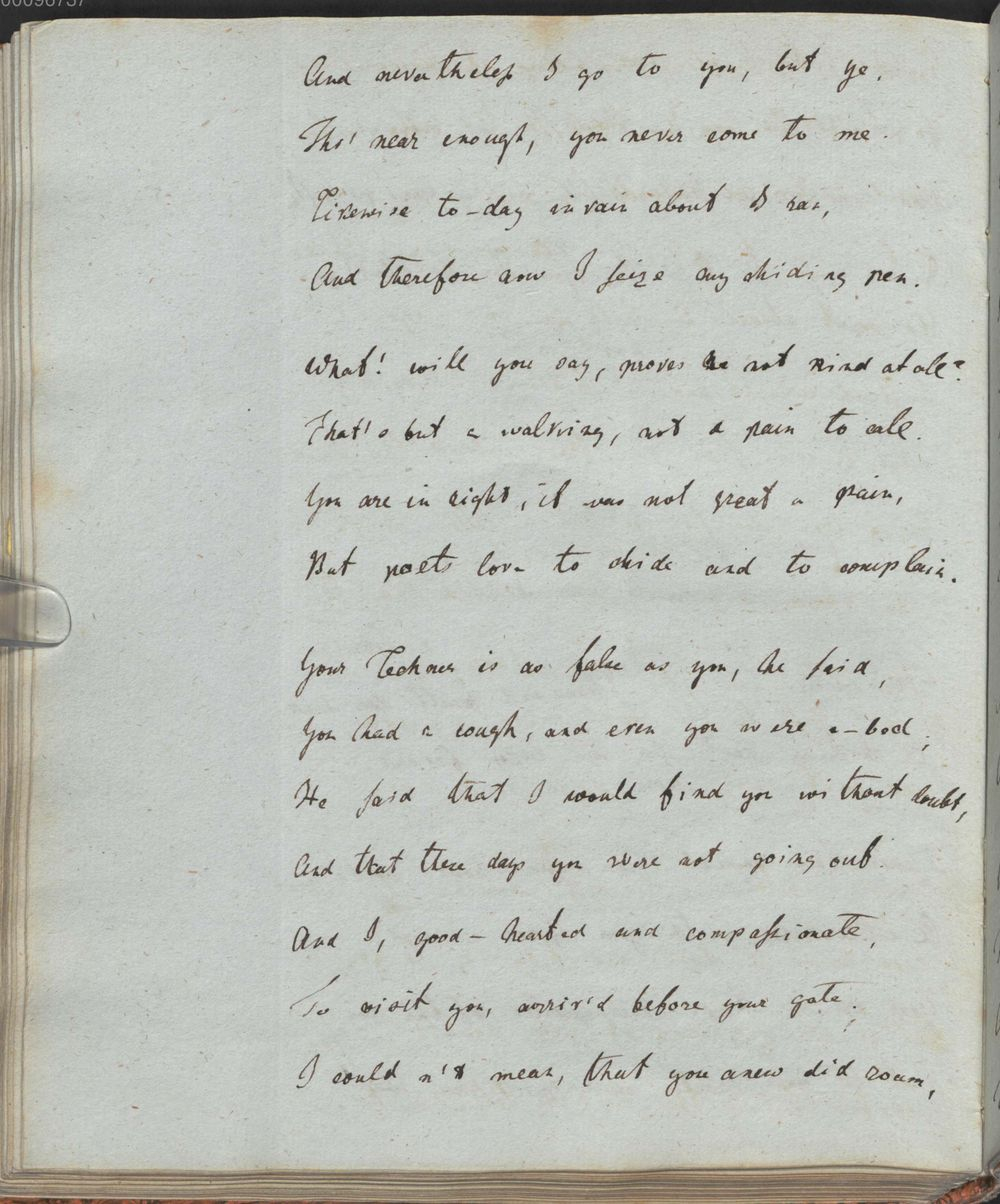 00096737
And nevertheless I go to you, but ye,
Tho' near enough, you never come to me.
Likewise to-day in vain about I ran,
And therefore now I seize my chiding pen.
What! will you say, proves he not kind at all?
That's but a walking, not a pain to call.
You are in right, it was not great a pain,
But poets love to chide and to complain.
Your is as false as you, he said,
You had a cough, and even you were a-bed;
He said that I would find you without doubt,
And that these days you were not going out.
And I, good-hearted and compassionate,
To visit you, arriv'd before your gate;
I could n't mean, that you anew did roam,